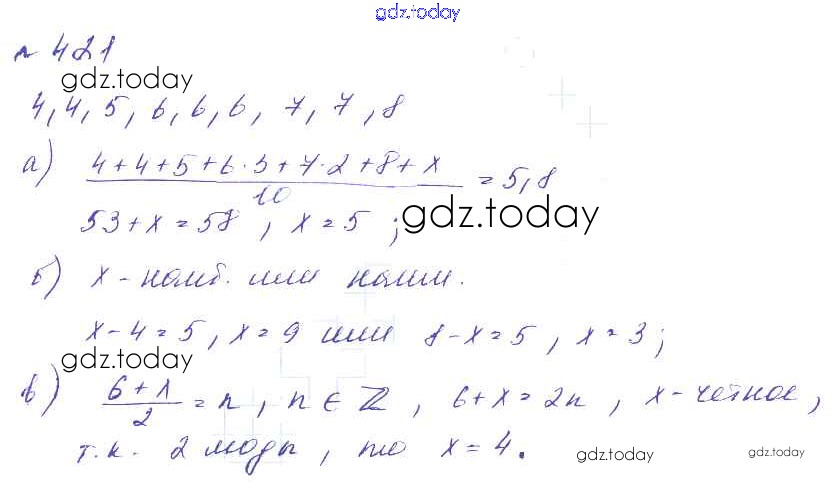 gdz.today
№ 421
gdz.today
4, 4, 5, 6, 6, 6, 7, 7, 8
а) (4+4+5+6·3+7·2+8+x)/10 = 5,8
53+x=58, x=5; gdz.today
б) x – наиб. или наим.
x-4=5, x=9 или 8-x=5, x=3;
gdz.today
в) (6+x)/2 = n, n ∈ ℤ, 6+x=2n, x – четное,
т.к. 2 моды, то x=4.
gdz.today gdz.today